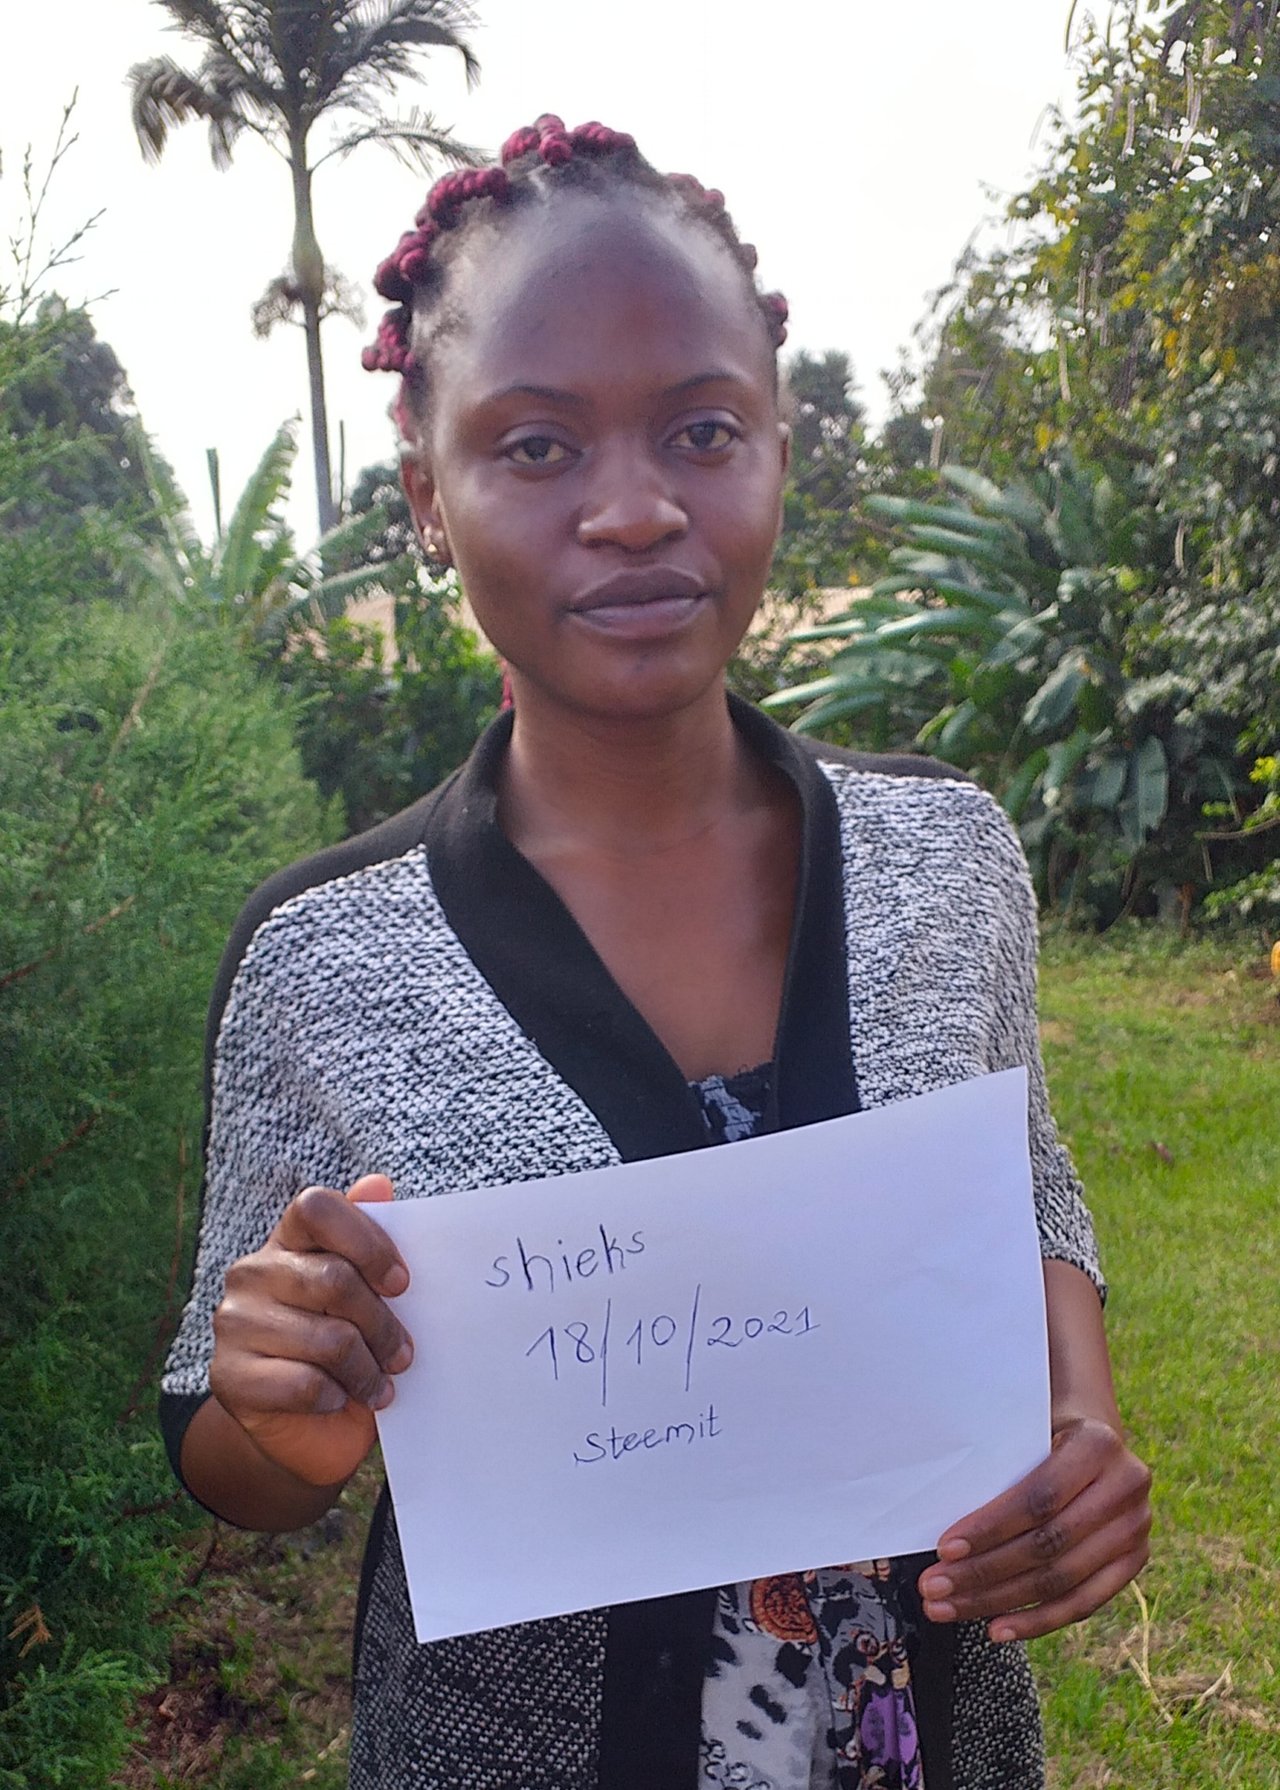 shieks
18/10/2021
Steemit